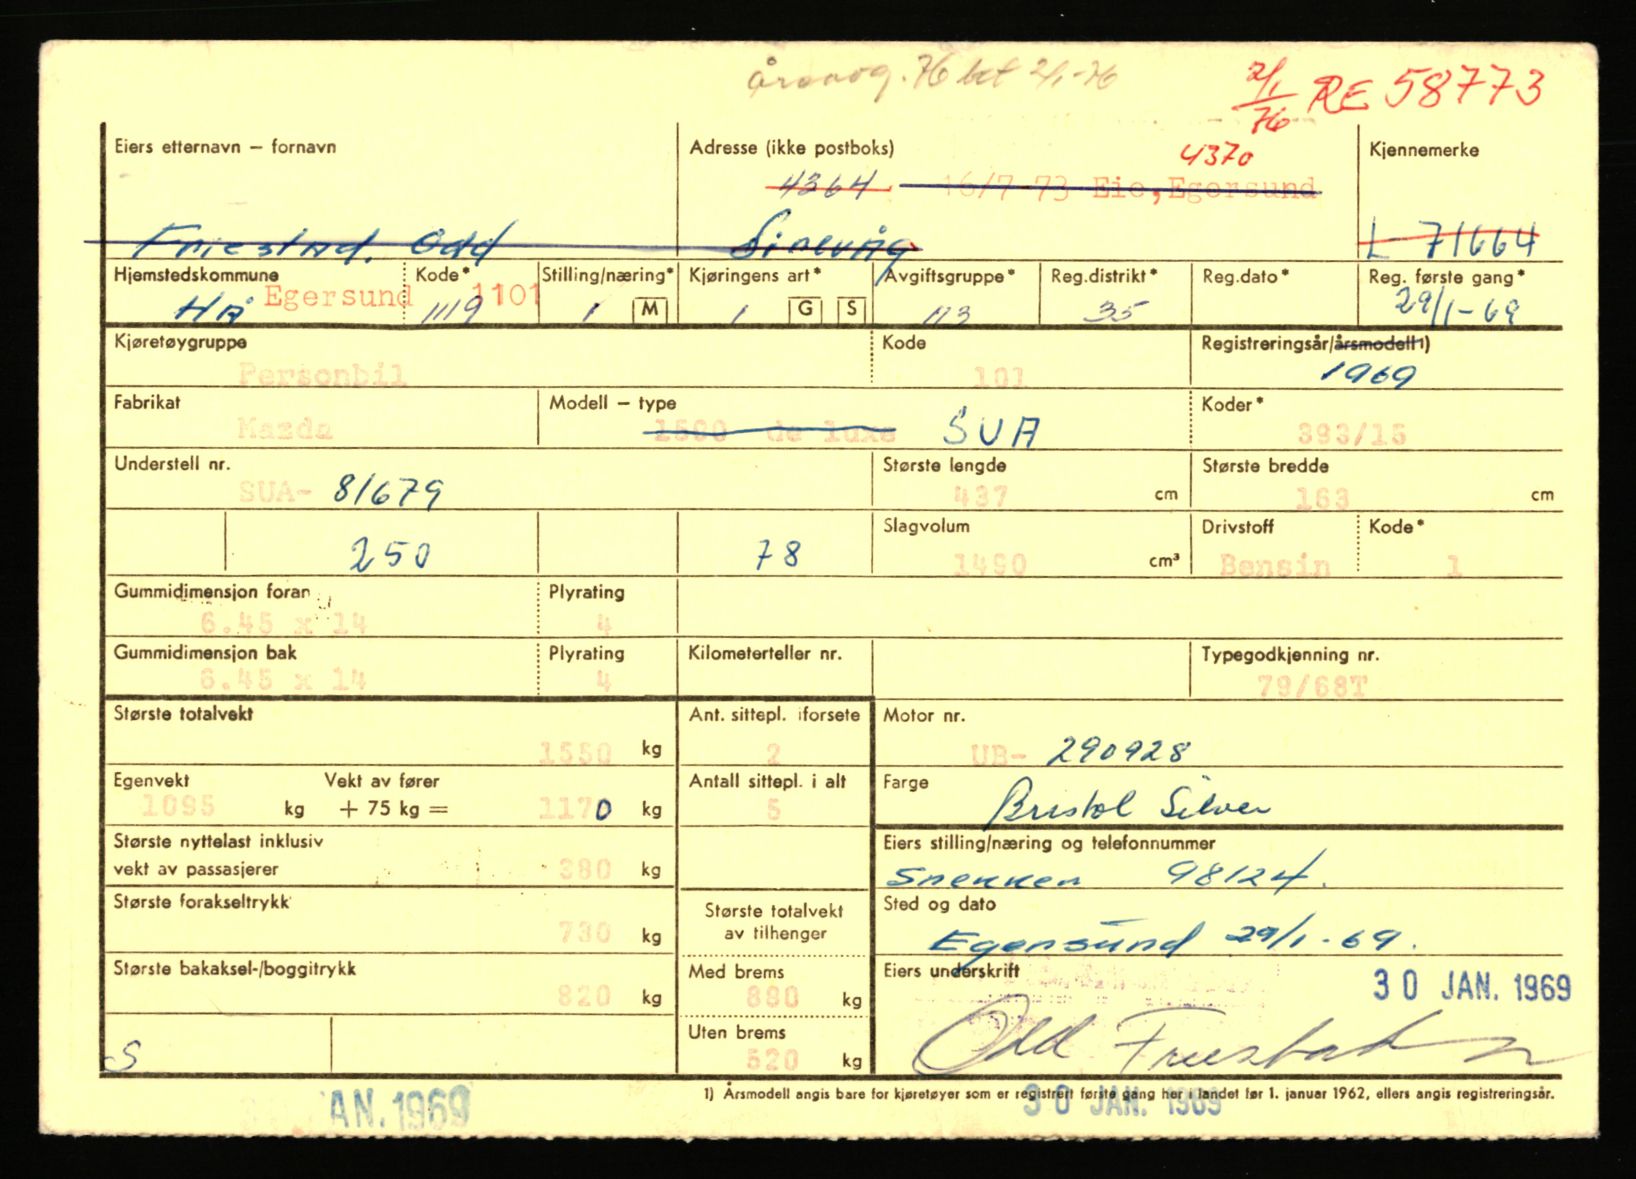 årsavg. 76 bet 2/1-76
2/1 76 RE 58773
Eiers etternavn – fornavn
Adresse (ikke postboks)
4370
Kjennemerke
4364 16/7-73 Eie, Egersund
Friestad, Odd
Sirevåg
L-71664
Hjemstedskommune
Kode*
Stilling/næring*
Kjøringens art*
Avgiftsgruppe*
Reg.distrikt*
Reg.dato*
Reg. første gang*
HÅ Egersund
1119 1101
1 M
1 G S
113
35
29/1-69
Kjøretøygruppe
Kode
Registreringsår/årsmodell 1)
Personbil
101
1969
Fabrikat
Modell – type
Koder*
Mazda
1500 de luxe SUA
393/15
Understell nr.
Største lengde
Største bredde
SUA- 81679
437 cm
163 cm
Slagvolum
Drivstoff
Kode*
250
78
1490 cm³
Bensin
1
Gummidimensjon foran
Plyrating
6.45 x 14
4
Gummidimensjon bak
Plyrating
Kilometerteller nr.
Typegodkjenning nr.
6.45 x 14
4
79/68T
Største totalvekt
Ant. sittepl. iforsete
Motor nr.
1550 kg
2
UB- 290928
Egenvekt
Vekt av fører
Antall sittepl. i alt
Farge
1095 kg + 75 kg = 1170 kg
5
Bristol Silver
Største nyttelast inklusiv
vekt av passasjerer
380 kg
Eiers stilling/næring og telefonnummer
Snekker 98124.
Største forakseltrykk
730 kg
Største totalvekt
av tilhenger
Sted og dato
Egersund 29/1-69.
Største bakaksel-/boggitrykk
820 kg
Med brems
880 kg
Eiers underskrift
30 JAN. 1969
Uten brems
520 kg
Odd Friestad
S
1) Årsmodell angis bare for kjøretøyer som er registrert første gang her i landet før 1. januar 1962, ellers angis registreringsår.
AN. 1969
30 JAN. 1969